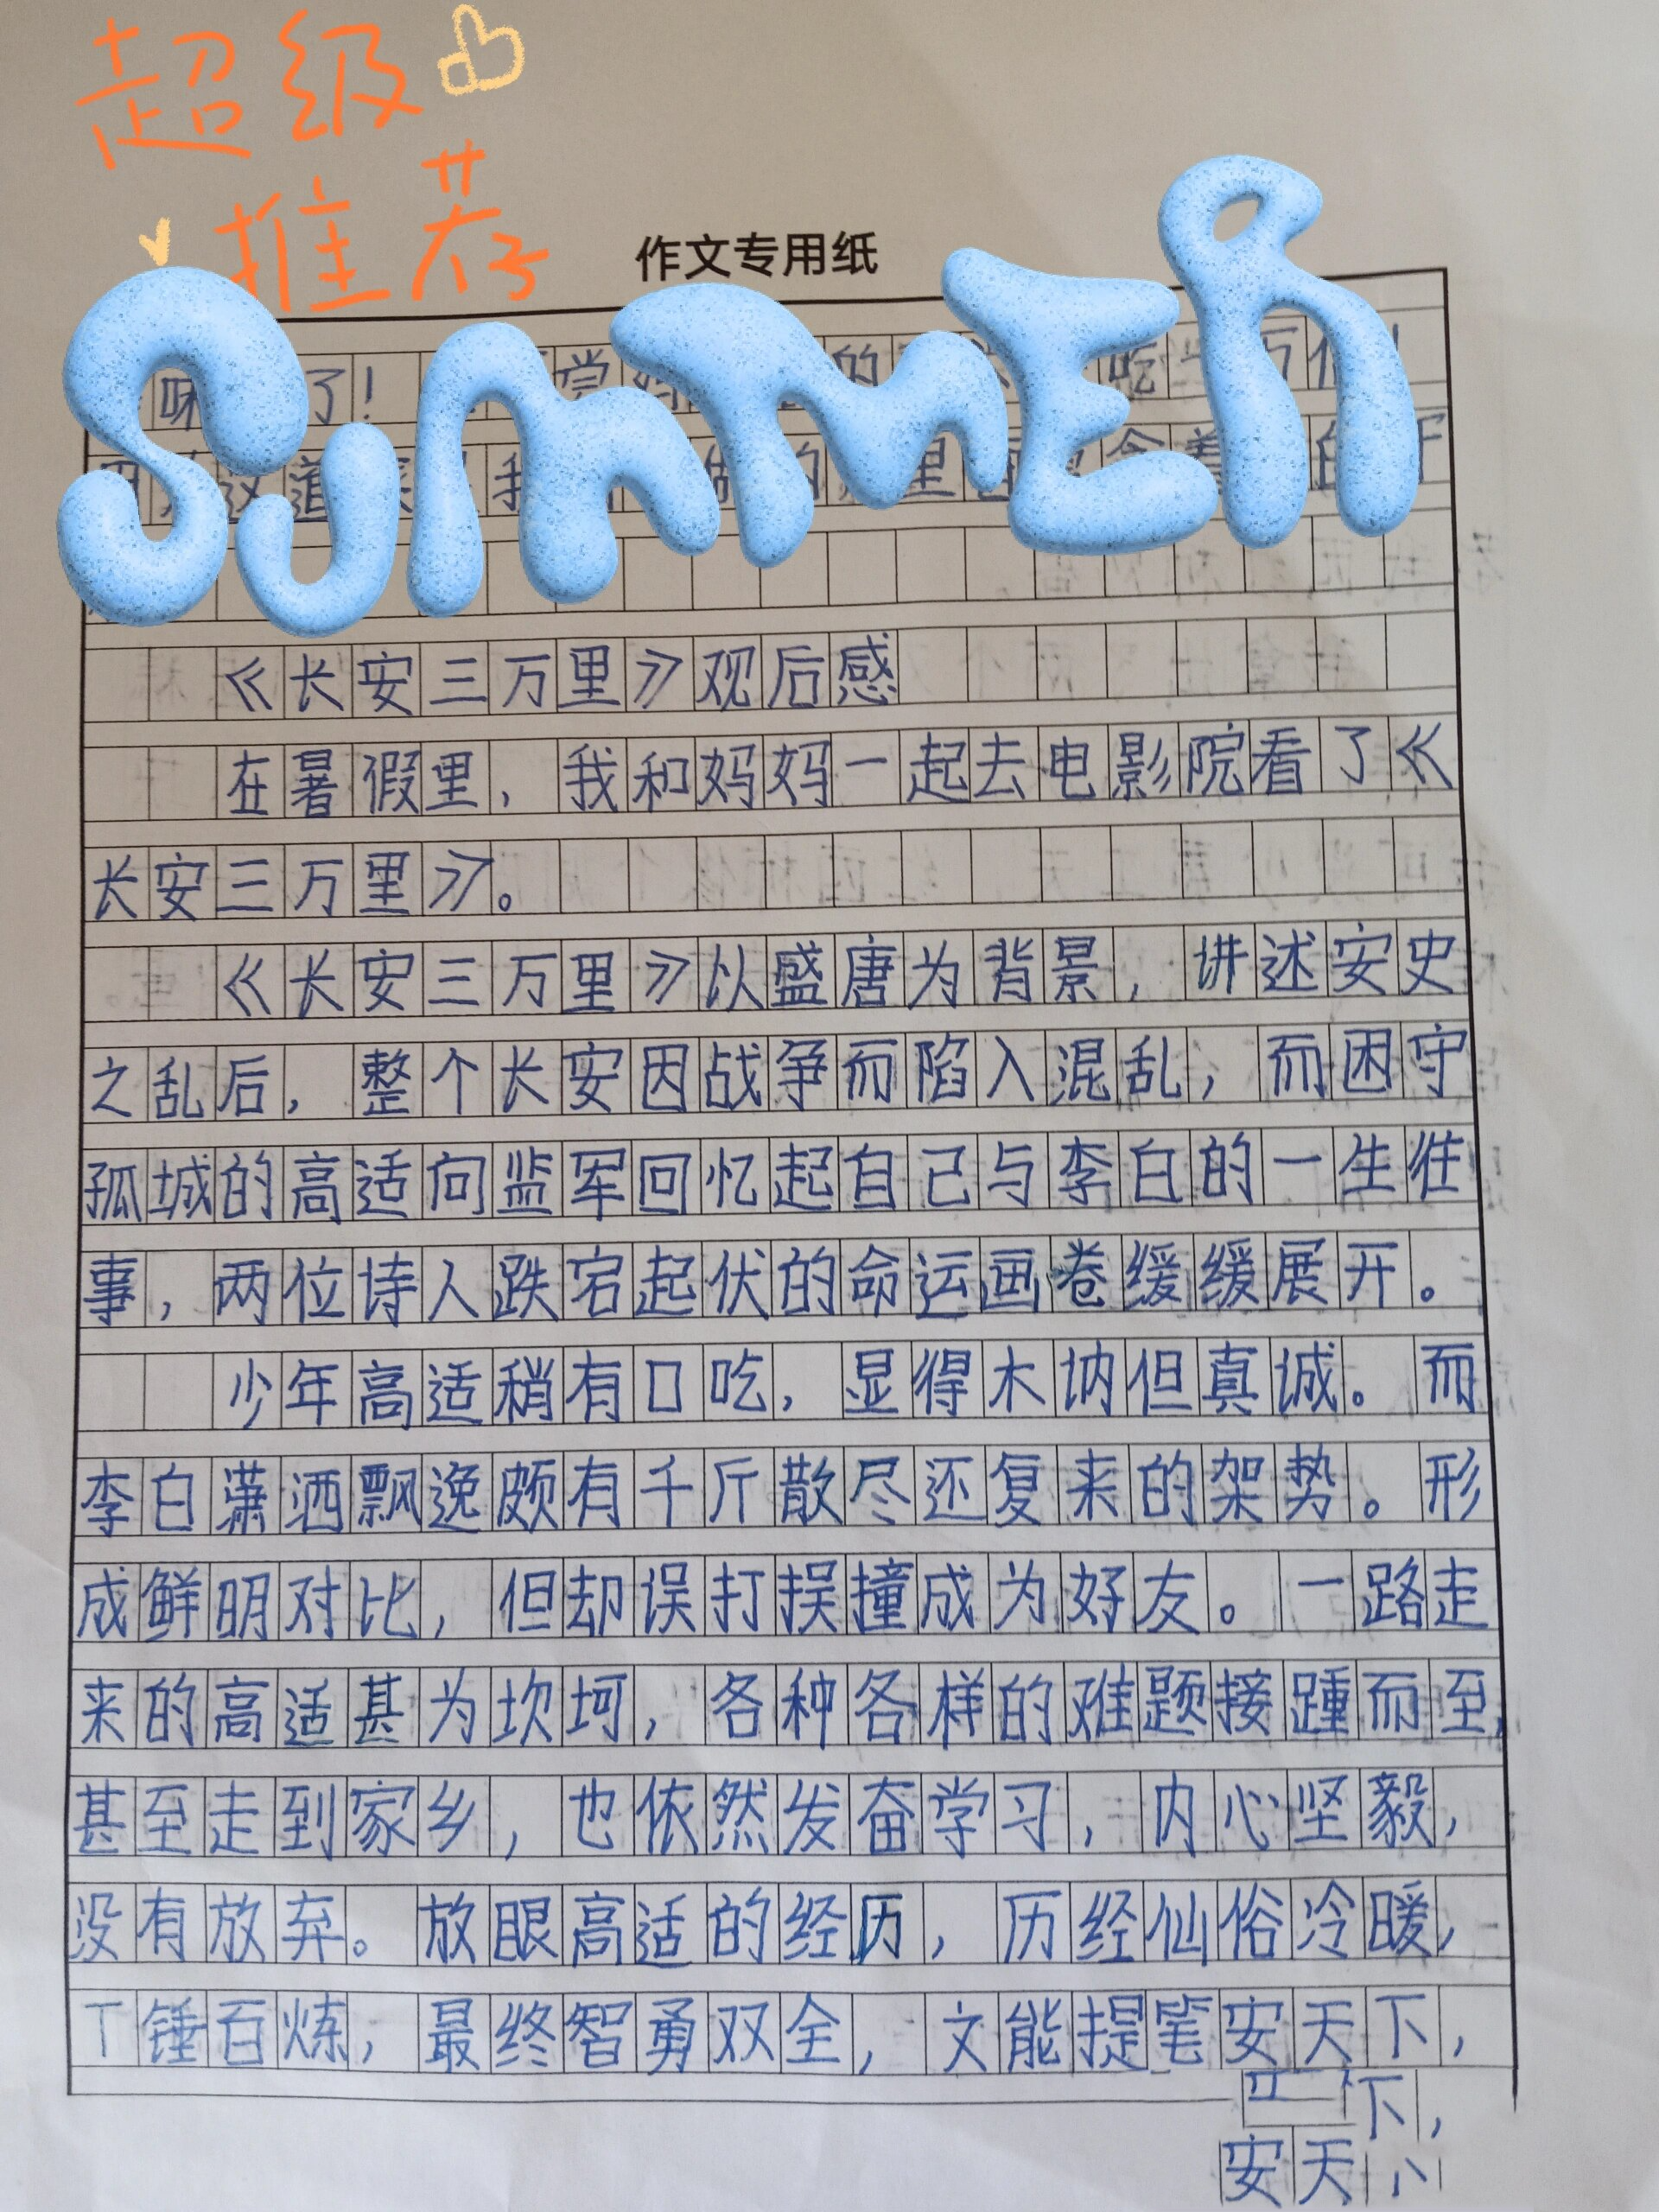 超级
推荐
作文专用纸
SUMMER
味 了！ 尝 的 吃
这道 我 的 里
《长安三万里》观后感
在暑假里，我和妈妈一起去电影院看了《
长安三万里》。
《长安三万里》以盛唐为背景，讲述安史
之乱后，整个长安因战争而陷入混乱，而困守
孤城的高适向监军回忆起自己与李白的一生往
事，两位诗人跌宕起伏的命运画卷缓缓展开。
少年高适稍有口吃，显得木讷但真诚。而
李白潇洒飘逸颇有千斤散尽还复来的架势。形
成鲜明对比，但却误打误撞成为好友。一路走
来的高适甚为坎坷，各种各样的难题接踵而至，
甚至走到家乡，也依然发奋学习，内心坚毅，
没有放弃。放眼高适的经历，历经仙俗冷暖，
锤百炼，最终智勇双全，文能提笔安天下，
下，
安天